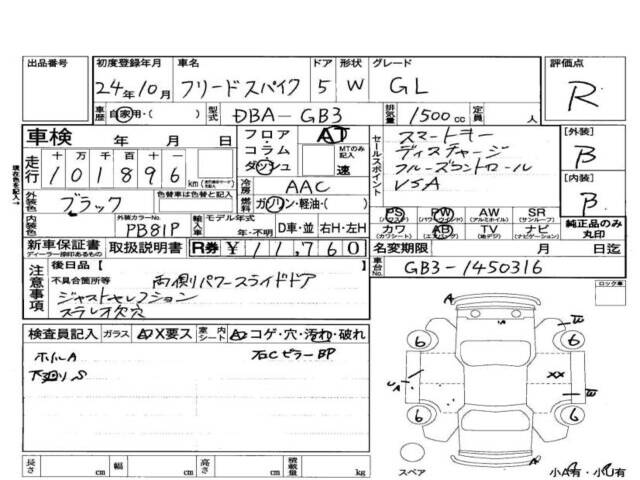 出品番号
初度登録年月 車名 ドア 形状 グレード 評価点
24年10月 フリードスパイク 5 W GL R
車歴 自家用・( ) 型式 DBA-GB3 排気量 1500cc 定員 人
車検 年 月 日
フロア・コラム・ダッシュ AT MTのみ記入 速
セールスポイント
スマートキー
ディスチャージ
クルーズコントロール
VSA
[外装] B
[内装] B
現在色を記入→
走行 十万千百十一
101896 km
冷房 AAC
燃料 ガソリン・軽油・( )
外装色 ブラック 色替車は色替と記入
内装色 外装カラーNo. PB81P
輸入車 モデル年式 年・不明 D車・並 右H・左H
PS (パワステ) PW (パワーウインド) AW (アルミホイル) SR (サンルーフ)
カワ (カワシート) AB (エアバック) TV (地デジ) ナビ (ナビゲーション)
純正品のみ丸印
新車保証書 ディーラー捺印あるもの 取扱説明書 R券 ¥11,760
名変期限 月 日迄
車台No. GB3-1450316
注意事項
後日品 [ ]
不具合箇所等 両側パワースライドドア
ジャストセレクション
ステレオ欠穴
ロック車
検査員記入 ガラス AX要ス 室内シート コゲ・穴・汚れ・破れ
ホイルA 右CピラーBP
下廻りS
A
A
W
6 6
XX
W
6 6
A
スペア 小A有・小U有
長さ cm 幅 cm 高さ cm 積載量 kg